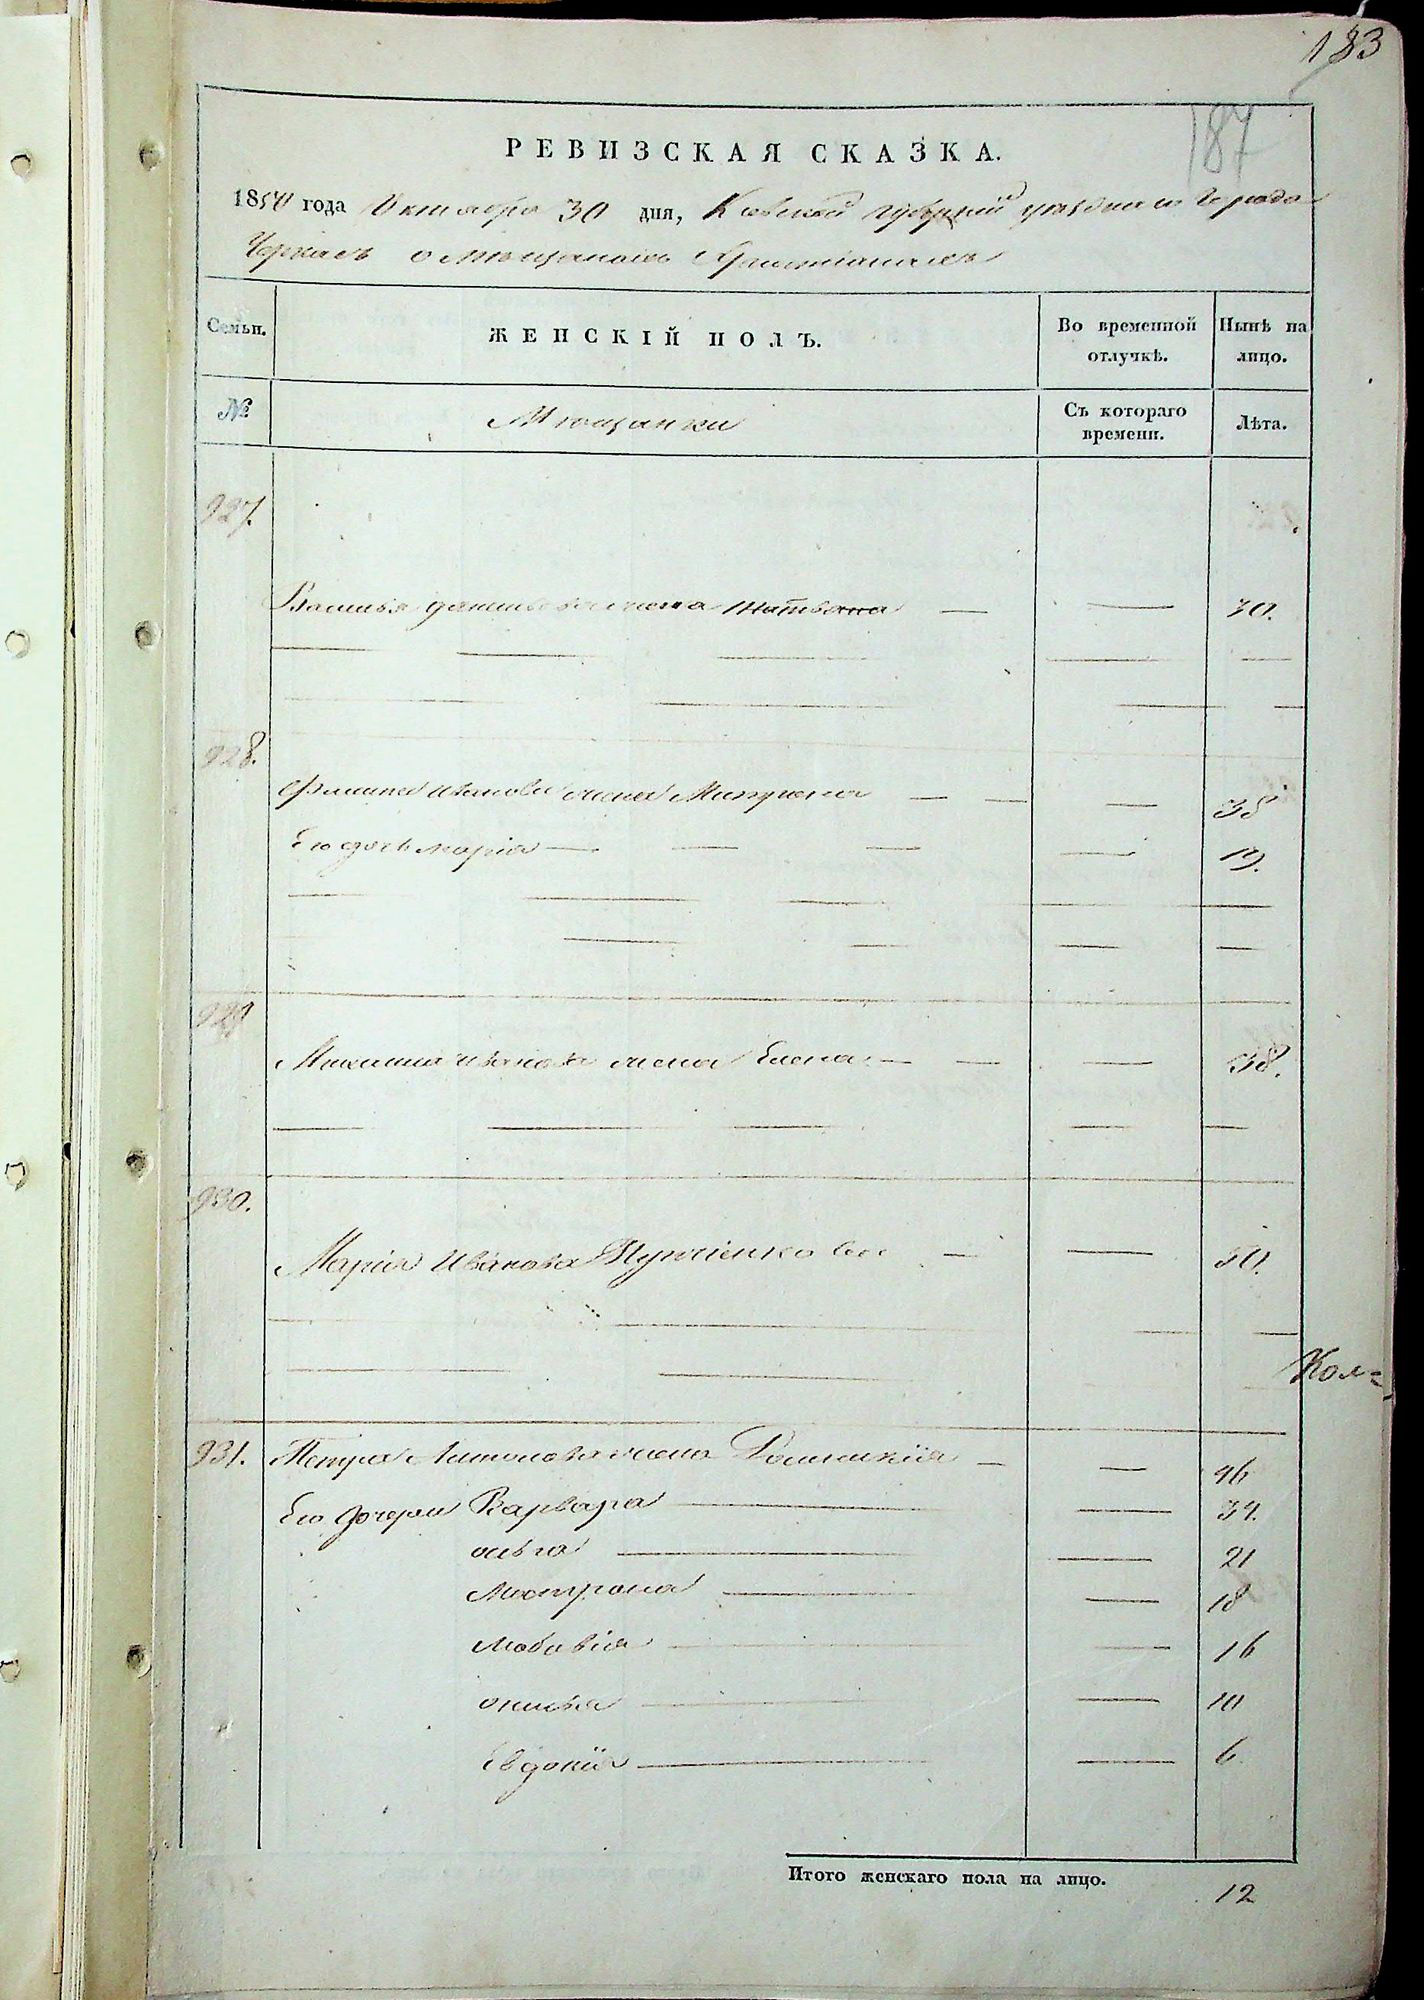 183
187
РЕВИЗСКАЯ СКАЗКА.
1850 года Октября 30 дня, Кіевской губерніи уезднаго Города
Черкасъ о мѣщанахъ Христіанахъ
Семьи. ЖЕНСКІЙ ПОЛЪ. Во временной отлучкѣ. Нынѣ на лицо.
№ Мѣщанки Съ котораго времени. Лѣта.
927.
Василья жена Татьяна — — 30.
928.
Филипа Иванова жена Матрена — — — 38
Его дочь Марія — — — — 19.
929
Михаила Иванова жена Елена — — — 38.
930.
Марія Иванова — — 50.
Кол=
931. Петра Антонова жена — — 46
Его дочери Варвара — — 34.
Ольга — — 21
Матрона — — 18
— — 16
— — 10
Евдокія — — 6
Итого женскаго пола на лицо.
12